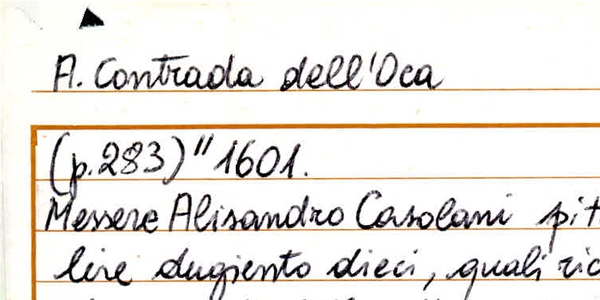 A. Contrada dell'Oca
(p.283)"1601.
Messere Alisandro Casolani pit
lire dugiento dieci, quali ric